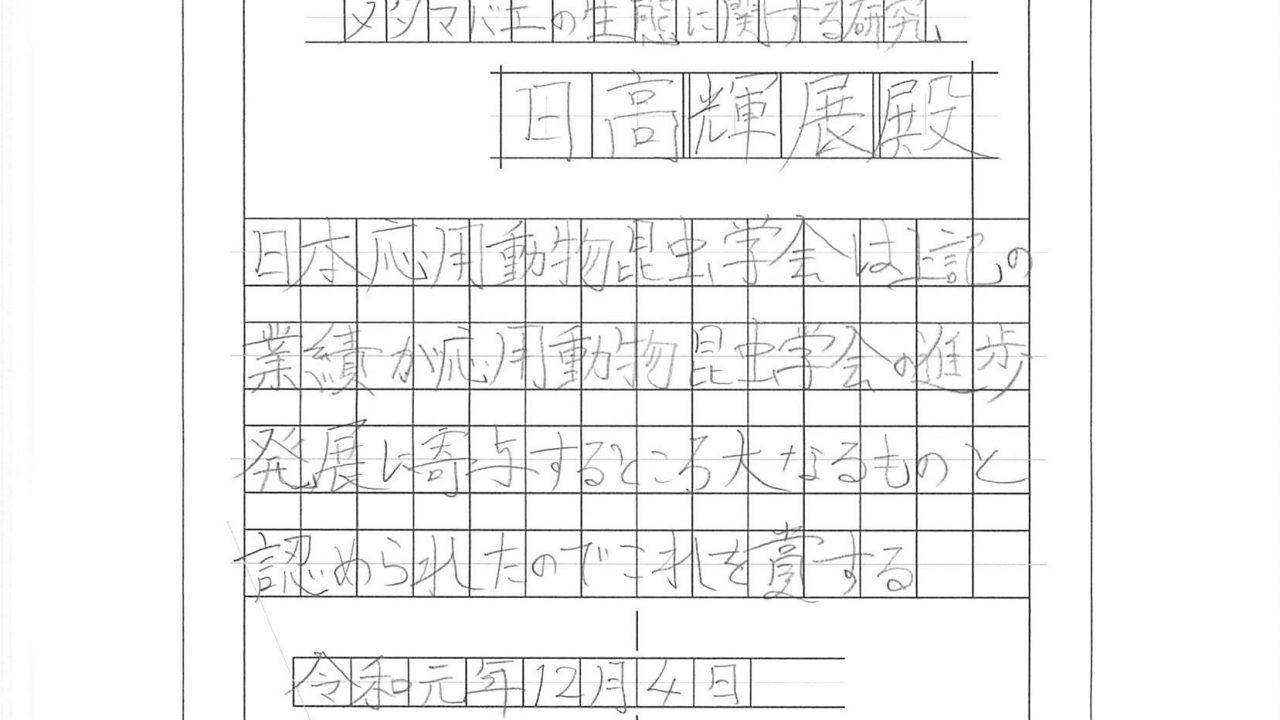 タンマバエの生態に関する研究
日高輝展殿
日本応用動物昆虫学会は上記の
業績が応用動物昆虫学会の進歩
発展に寄与するところ大なるものと
認められたのでこれを賞する
令和元年12月4日